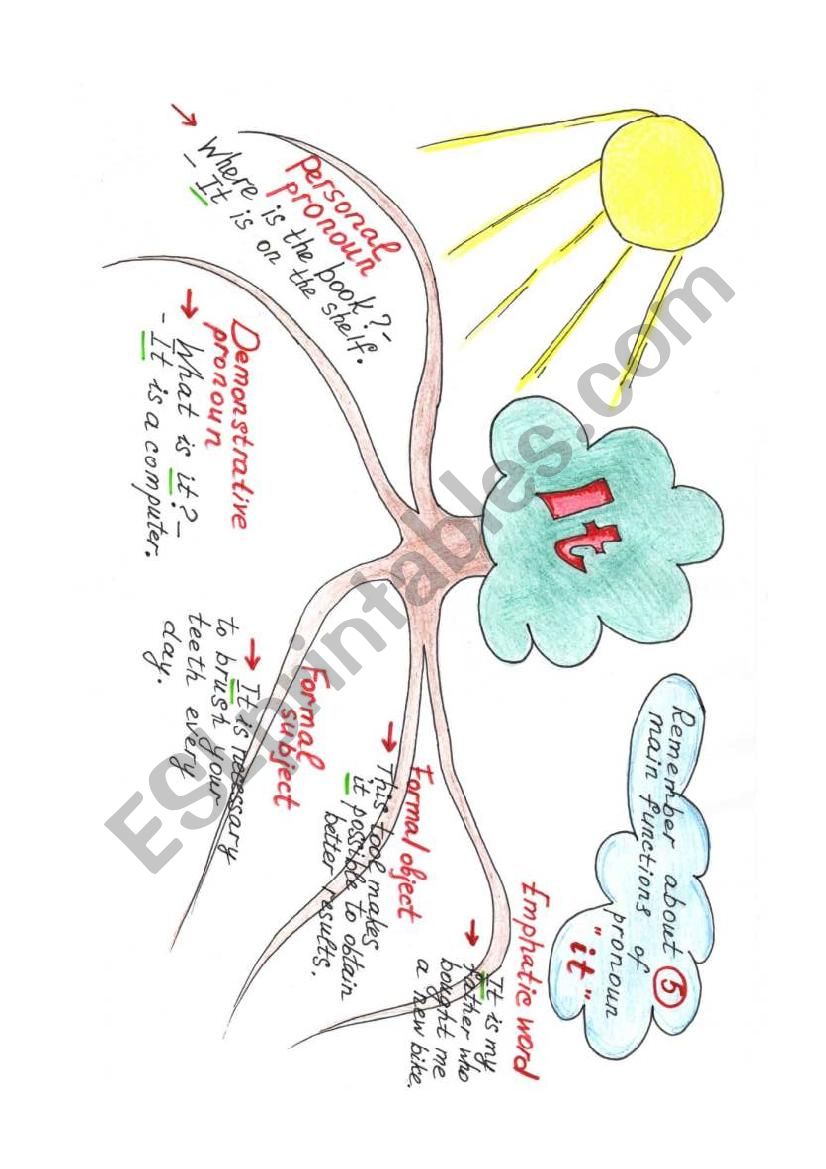 Remember about 5
main functions of
pronoun
"it"
It
Personal
pronoun
Where is the book?-
- It is on the shelf.
Demonstrative
pronoun
What is it?-
- It is a computer.
Formal
subject
It is necessary
to brush your
teeth every
day.
Formal object
This tool makes
it possible to obtain
better results.
Emphatic word
It is my
father who
bought me
a new bike.
ESLprintables.com